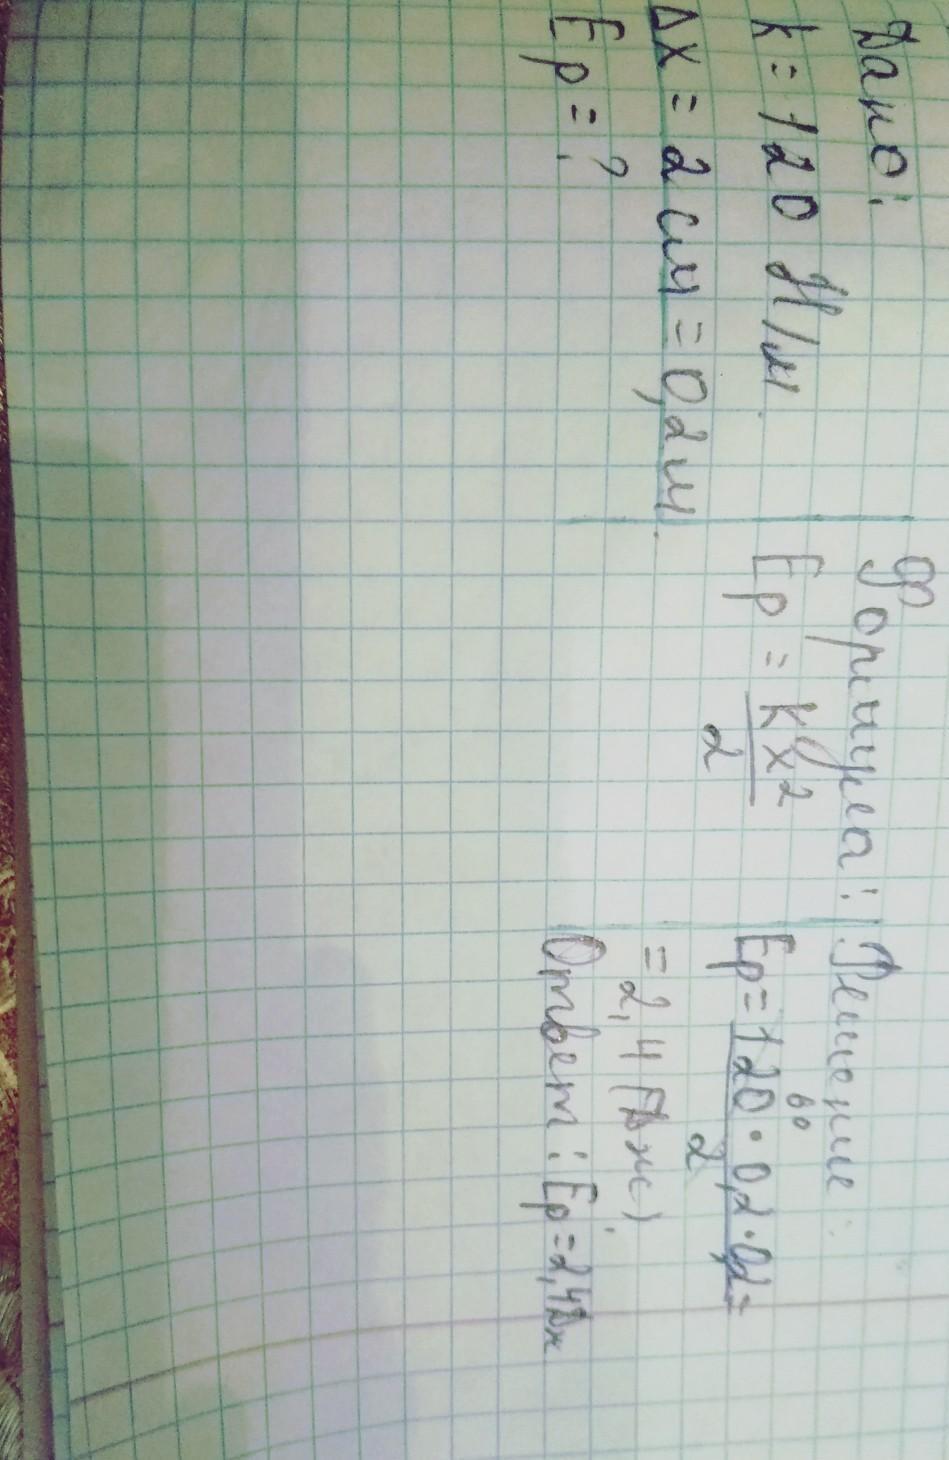 Дано:
k = 120 Н/м.
Δx = 2 см = 0,2 м.
Ep = ?
Формула:
Ep = kx²
2
Решение:
60
Ep = 120 · 0,2 · 0,2 =
2
= 2,4 (Дж)
Ответ: Ep = 2,4 Дж